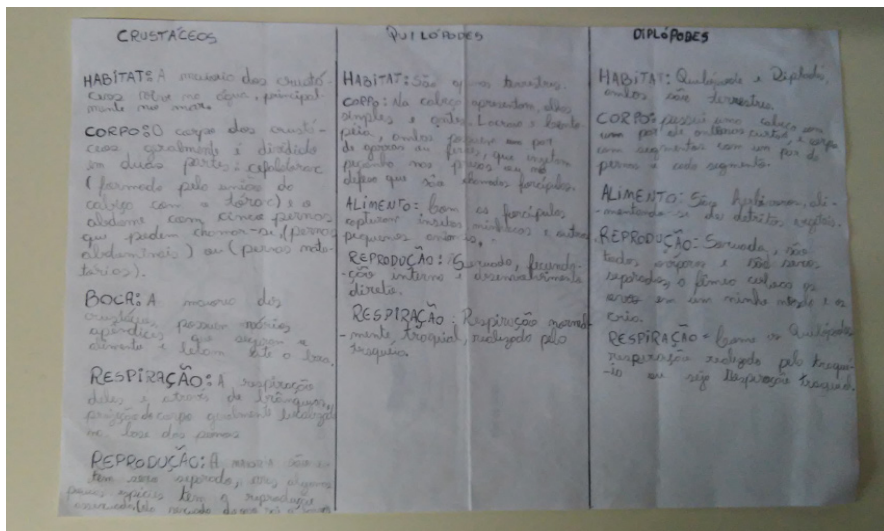 CRUSTÁCEOS
HABITAT: A maioria dos crustá-
ceos vive na água, principal-
mente no mar.
CORPO: O corpo dos crustá-
ceos geralmente é dividido
em duas partes: cefalotórax
(formado pela união da
cabeça com o tórax) e o
abdome com cinco pernas
que podem chamar-se (pernas
abdominais) ou (pernas nata-
tórias).
BOCA: A maioria dos
crustáceos possuem vários
apêndices que seguram o
alimento e levam até a boca.
RESPIRAÇÃO: A respiração
deles é através de brânquias,
projeção do corpo geralmente localizada
na base das pernas
REPRODUÇÃO: A maioria
tem sexo separado, mas algumas
poucas espécies tem a reprodução
QUILÓPODES
HABITAT: São terrestres.
CORPO: Na cabeça apresentam, olhos
simples e
ambos possuem um par
de que injetam
peçonha nas presas ou na
defesa que são chamados forcípulas.
ALIMENTO: Com as forcípulas
capturam insetos minhocas e outros
pequenos animais.
REPRODUÇÃO: Sexuada, fecunda-
-ção interna e desenvolvimento
direta.
RESPIRAÇÃO: Respiração normal-
-mente, traqueal, realizada pela
traqueia.
DIPLÓPODES
HABITAT: Quilópode e Diplodó,
ambos são terrestres.
CORPO: possui uma cabeça com
um par de antenas curtas, e corpo
com segmentos com um par de
pernas a cada segmento.
ALIMENTO: São herbívoros, ali-
-mentando se de detritos vegetais.
REPRODUÇÃO: Sexuada, são
todos ovíparos e são sexos
separados, a fêmea coloca os
ovos em um ninho e os
cria.
RESPIRAÇÃO - Como os Quilópodes
respiração realizada pela traqué-
-ia ou seja Respiração traqueal.